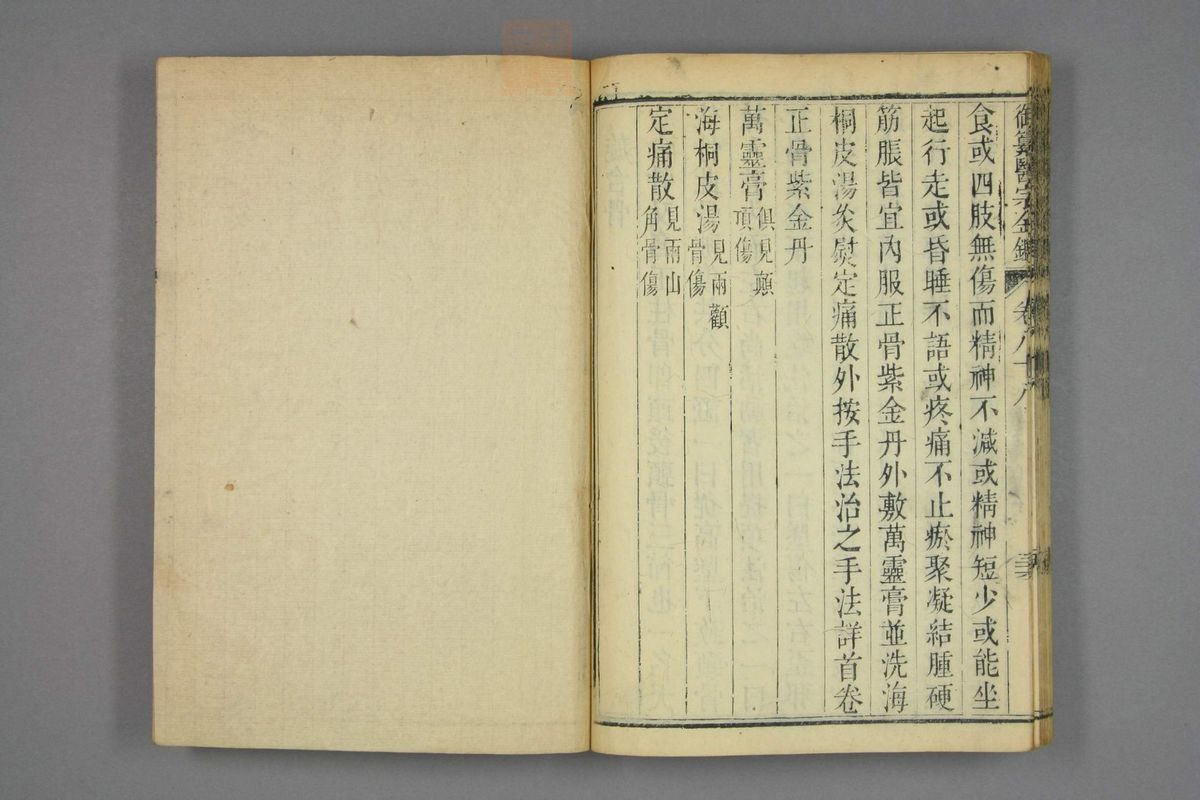 御纂醫宗金鑑 卷八十八
食或四肢無傷而精神不減或精神短少或能坐
起行走或昏睡不語或疼痛不止瘀聚凝結腫硬
筋脹皆宜內服正骨紫金丹外敷萬靈膏並洗海
桐皮湯灸熨定痛散外按手法治之手法詳首卷
正骨紫金丹
萬靈膏 俱見顛頂傷
海桐皮湯 見兩顴骨傷
定痛散 見兩山角骨傷